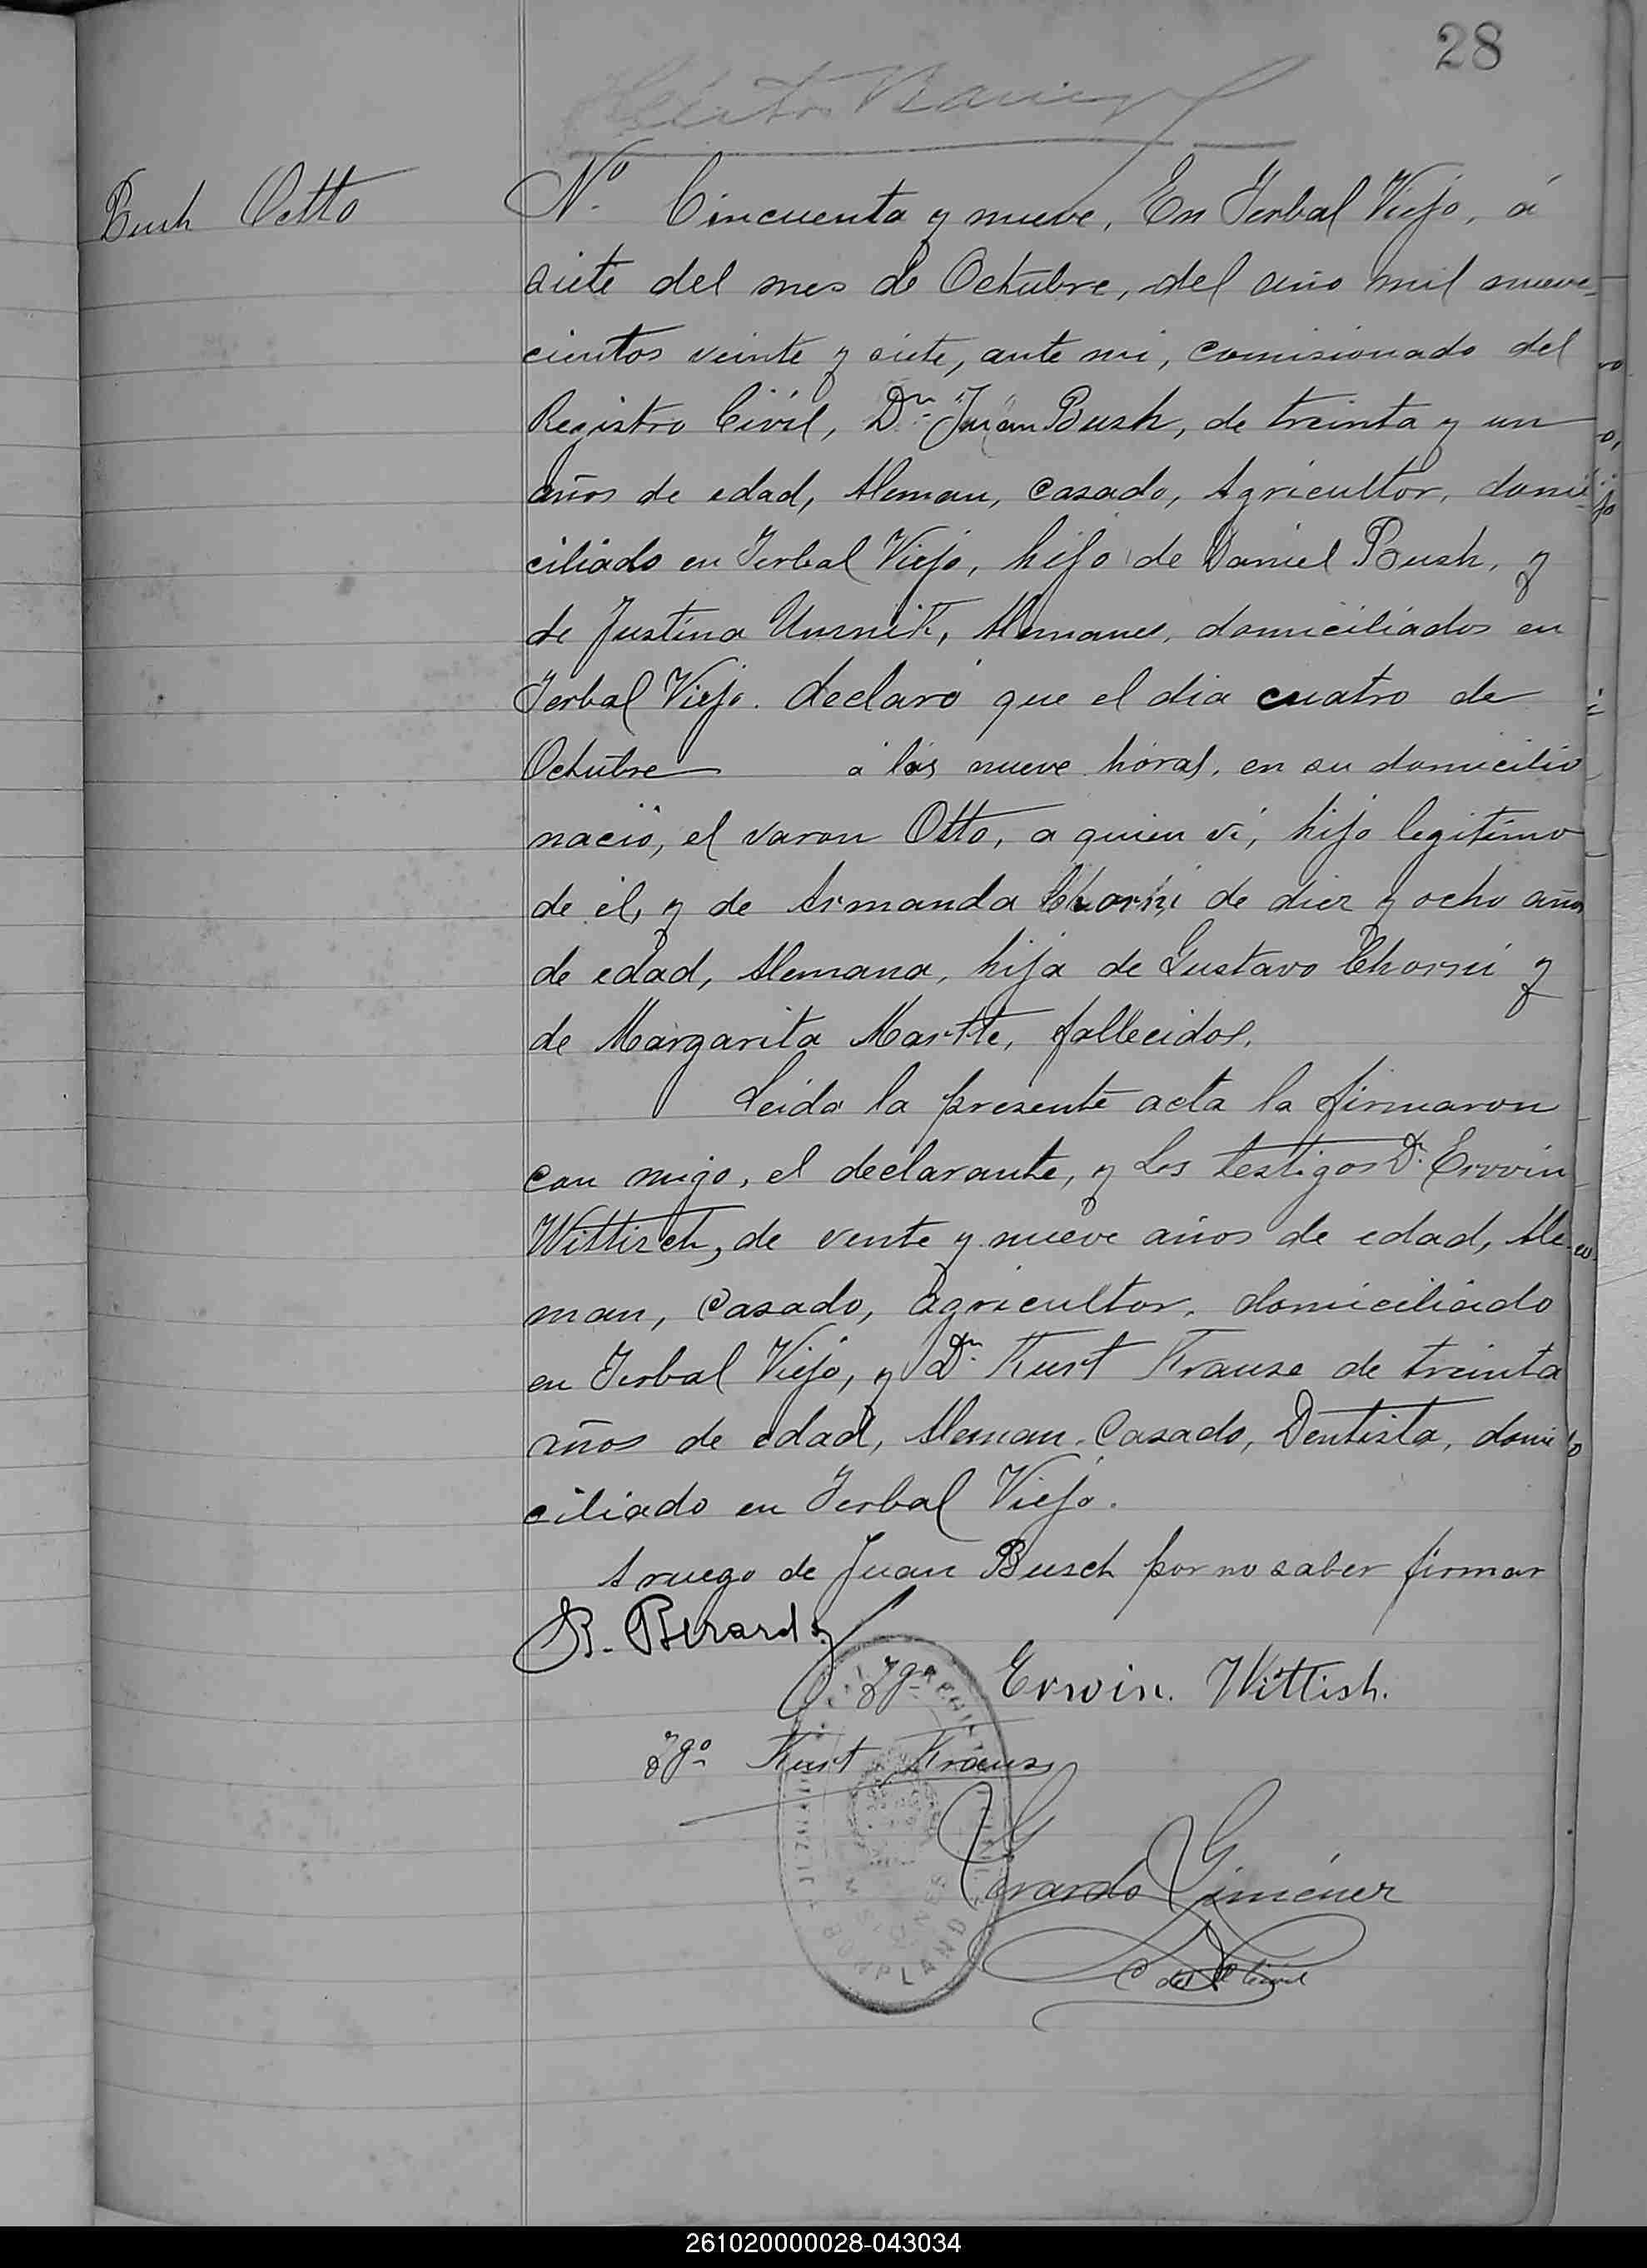 28
Bush Otto
Nº Cincuenta y nueve, En Yerbal Viejo, á
siete del mes de Octubre, del año mil nueve-
cientos veinte y siete, ante mi, comisionado del
Registro Civil, Dn. Juan Bush, de treinta y un
años de edad, Aleman, casado, Agricultor, domi-
ciliado en Yerbal Viejo, hijo de Daniel Bush, y
de Justina, Alemanes, domiciliados en
Yerbal Viejo. declaró que el dia cuatro de
Octubre a las nueve horas, en su domicilio
nació, el varon Otto, a quien ví, hijo legitimo
de él, y de Armanda de diez y ocho años
de edad, Alemana, hija de Gustavo y
de Margarita, fallecidos.
Leida la presente acta la firmaron
con migo, el declarante, y los testigos D. Erwin
Wittisch, de vente y nueve años de edad, Ale-
man, Casado, agricultor, domiciliado
en Yerbal Viejo, y Dn. Kurt Krause de treinta
años de edad, Aleman, Casado, Dentista, domi
ciliado en Yerbal Viejo.
A ruego de Juan Busch por no saber firmar
Tgo Erwin. Wittish.
Tgo Kurt Kraus
Gerardo Giménez
C del R Civil
MISIONES
BONPLAND
261020000028-043034